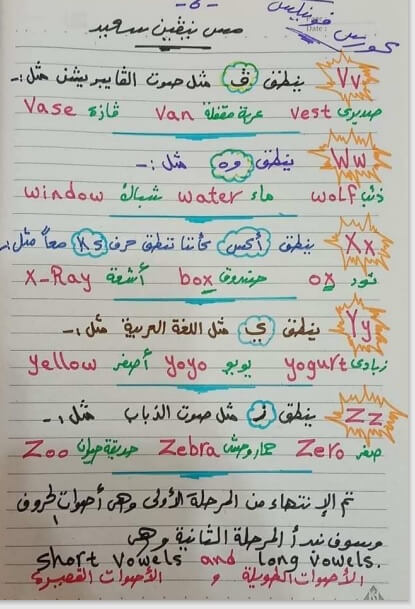 -6-
كورس فونيكس
مس نيفين سعيد
Vv ينطق ڤ مثل صوت الڤايبريشن مثل :-
صديرى vest عربة مقفلة van ڤازة vase
Ww ينطق وه مثل :-
ذئب wolf ماء water شباك window
Xx ينطق أكس كأننا ننطق حرف ks معاً مثل :-
ثور ox صندوق box أشعة x-Ray
Yy ينطق ي مثل اللغة العربية مثل :-
زبادى yogurt يويو yoyo أصفر yellow
Zz ينطق ز مثل صوت الذباب مثل :-
صفر Zero حمار وحش Zebra حديقة حيوان Zoo
تم الإنتهاء من المرحلة الأولى وهى أصوات الحروف
وسوف نبدأ المرحلة الثانية وهى
short vowels and long vowels.
الأصوات الطويلة و الأصوات القصيرة